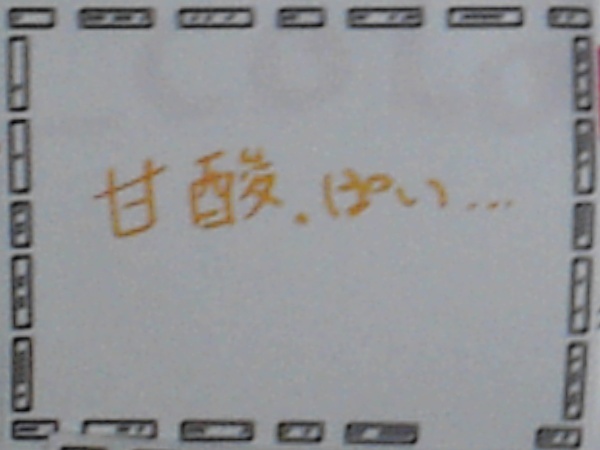 甘酸っぱい...